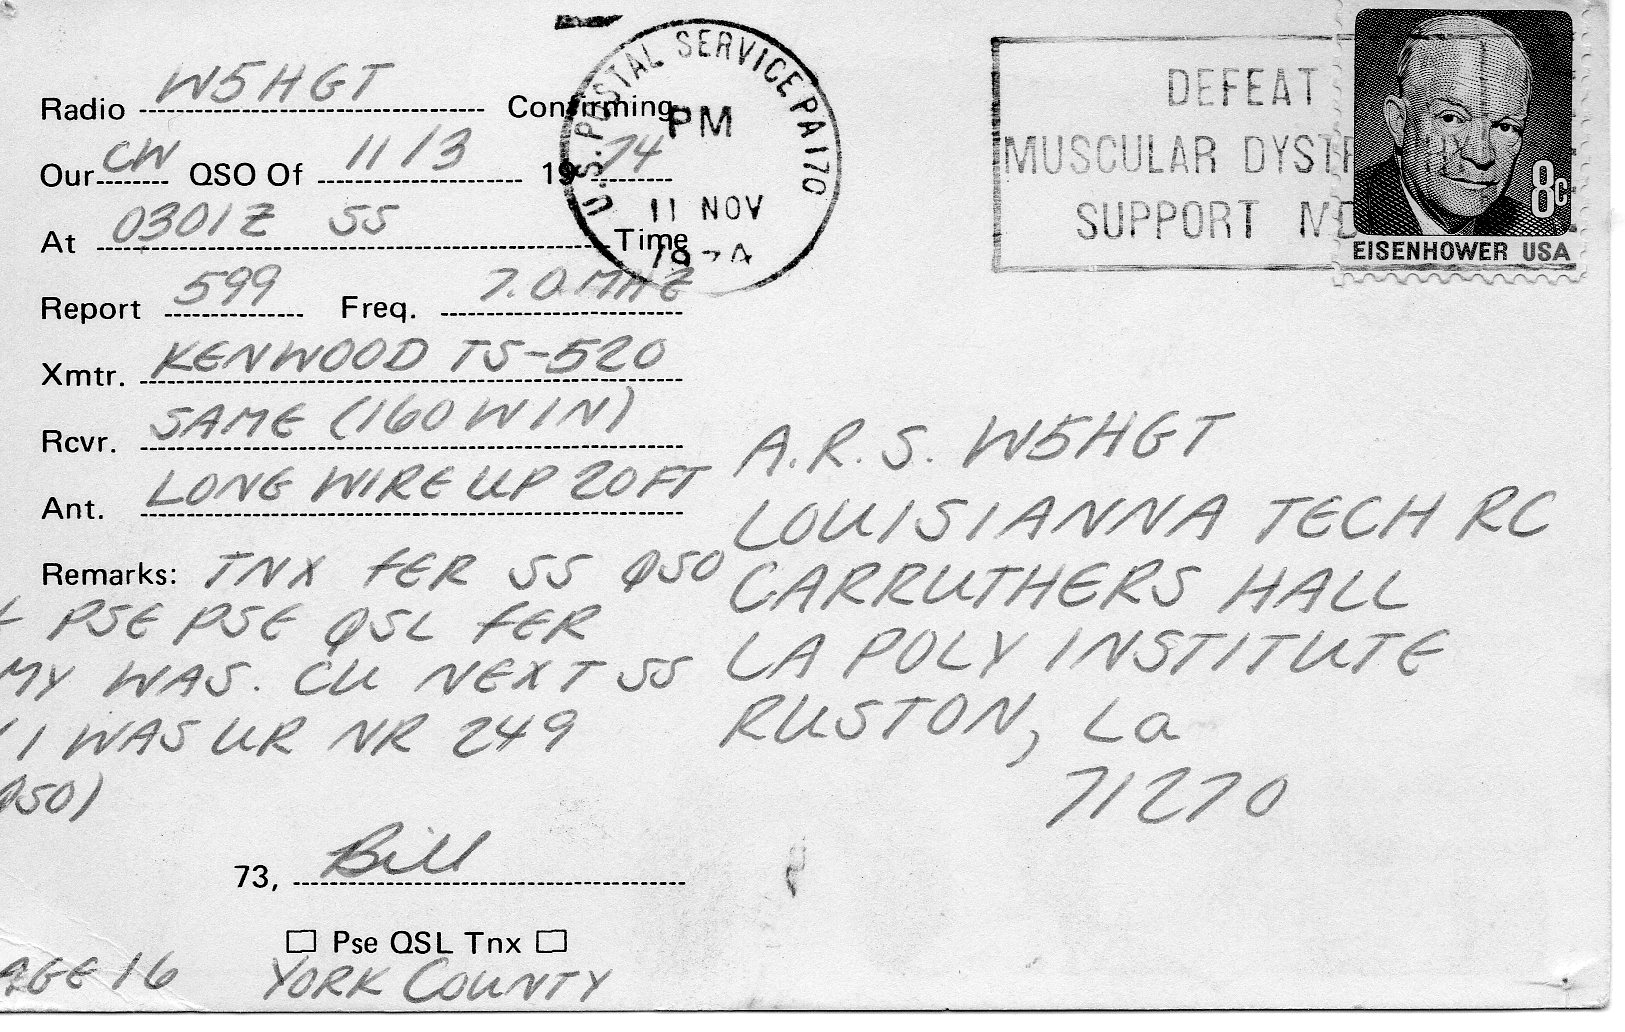 Radio W5HGT Confirming
Our CW QSO Of 11/3 1974
At 0301Z SS Time
Report 599 Freq. 7.0 MHZ
Xmtr. KENWOOD TS-520
Rcvr. SAME (160 W IN)
Ant. LONG WIRE UP 20 FT
Remarks: TNX FER SS QSO
PSE PSE QSL FER
MY WAS. CU NEXT SS
I WAS UR NR 249
QSO)
73, Bill
Pse QSL Tnx
AGE 16 YORK COUNTY
U.S. POSTAL SERVICE PA 170
PM
11 NOV
DEFEAT
MUSCULAR DYSTR
SUPPORT MD
8c
EISENHOWER USA
A.R.S. W5HGT
LOUISIANNA TECH RC
CARRUTHERS HALL
LA POLY INSTITUTE
RUSTON, La
71270